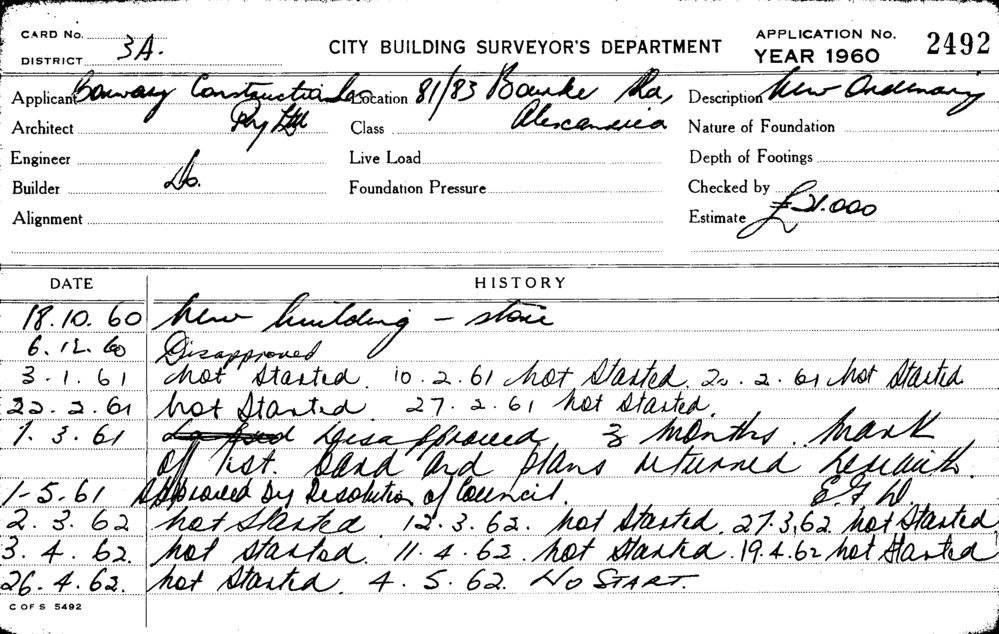 CARD No. 3A. CITY BUILDING SURVEYOR'S DEPARTMENT APPLICATION No. 2492
DISTRICT YEAR 1960
Applicant Constructions Location 81/83 Bourke Rd, Description New Ordinary
Architect Pty Ltd Class Alexandria Nature of Foundation
Engineer Live Load Depth of Footings
Builder Do. Foundation Pressure Checked by
Alignment Estimate £21.000
DATE HISTORY
18.10.60 New building - store
6.12.60 Disapproved
3.1.61 Not Started. 10.2.61 Not Started. 20.2.61 Not Started
22.2.61 Not Started. 27.2.61 Not Started.
1.3.61 Disapproved 3 months. Mark
of list. Card and plans returned herewith.
1-5.61 Approved by Resolution of Council.
2.3.62 Not Started. 12.3.62. Not Started. 27.3.62 Not Started
3.4.62. Not Started. 11.4.62. Not Started. 19.4.62 Not Started
26.4.62. Not Started. 4.5.62. NO START.
C OF S 5492